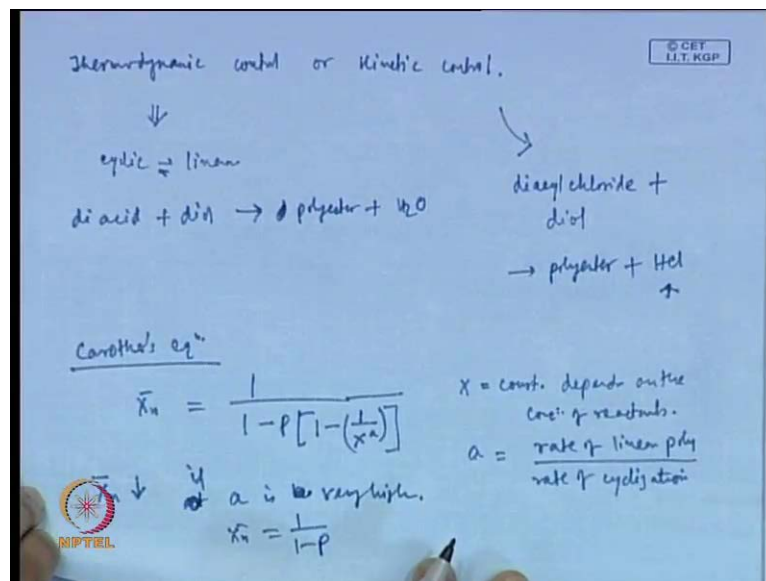 Thermodynamic control or Kinetic control.
© CET
I.I.T. KGP
⇓
cyclic ⇌ linear
di acid + diol → polyester + H2O
diacyl chloride +
diol
→ polyester + HCl
↑
Carother's eqn
x̄n = 1 / (1 - P[1 - (1/x^a)])
x = const. depend on the
conc. of reactants.
a = rate of linear poly / rate of cyclization
x̄n ↓ if a is very high.
x̄n = 1 / (1 - P)
NPTEL